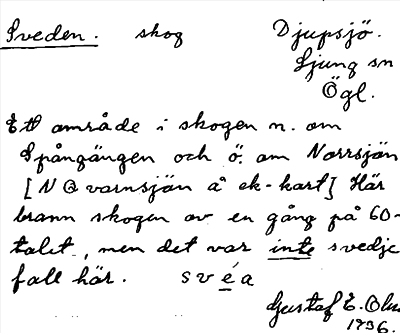 Sveden. skog Djupsjö.
Ljung sn
Ögl.
Ett område i skogen n. om
Spångängen och ö. om Norrsjön
[N Qvarnsjön å ek-kart] Här
brann skogen av en gång på 60-
talet, men det var inte svedje
fall här. svéa
Gustaf E. Olss
1936.